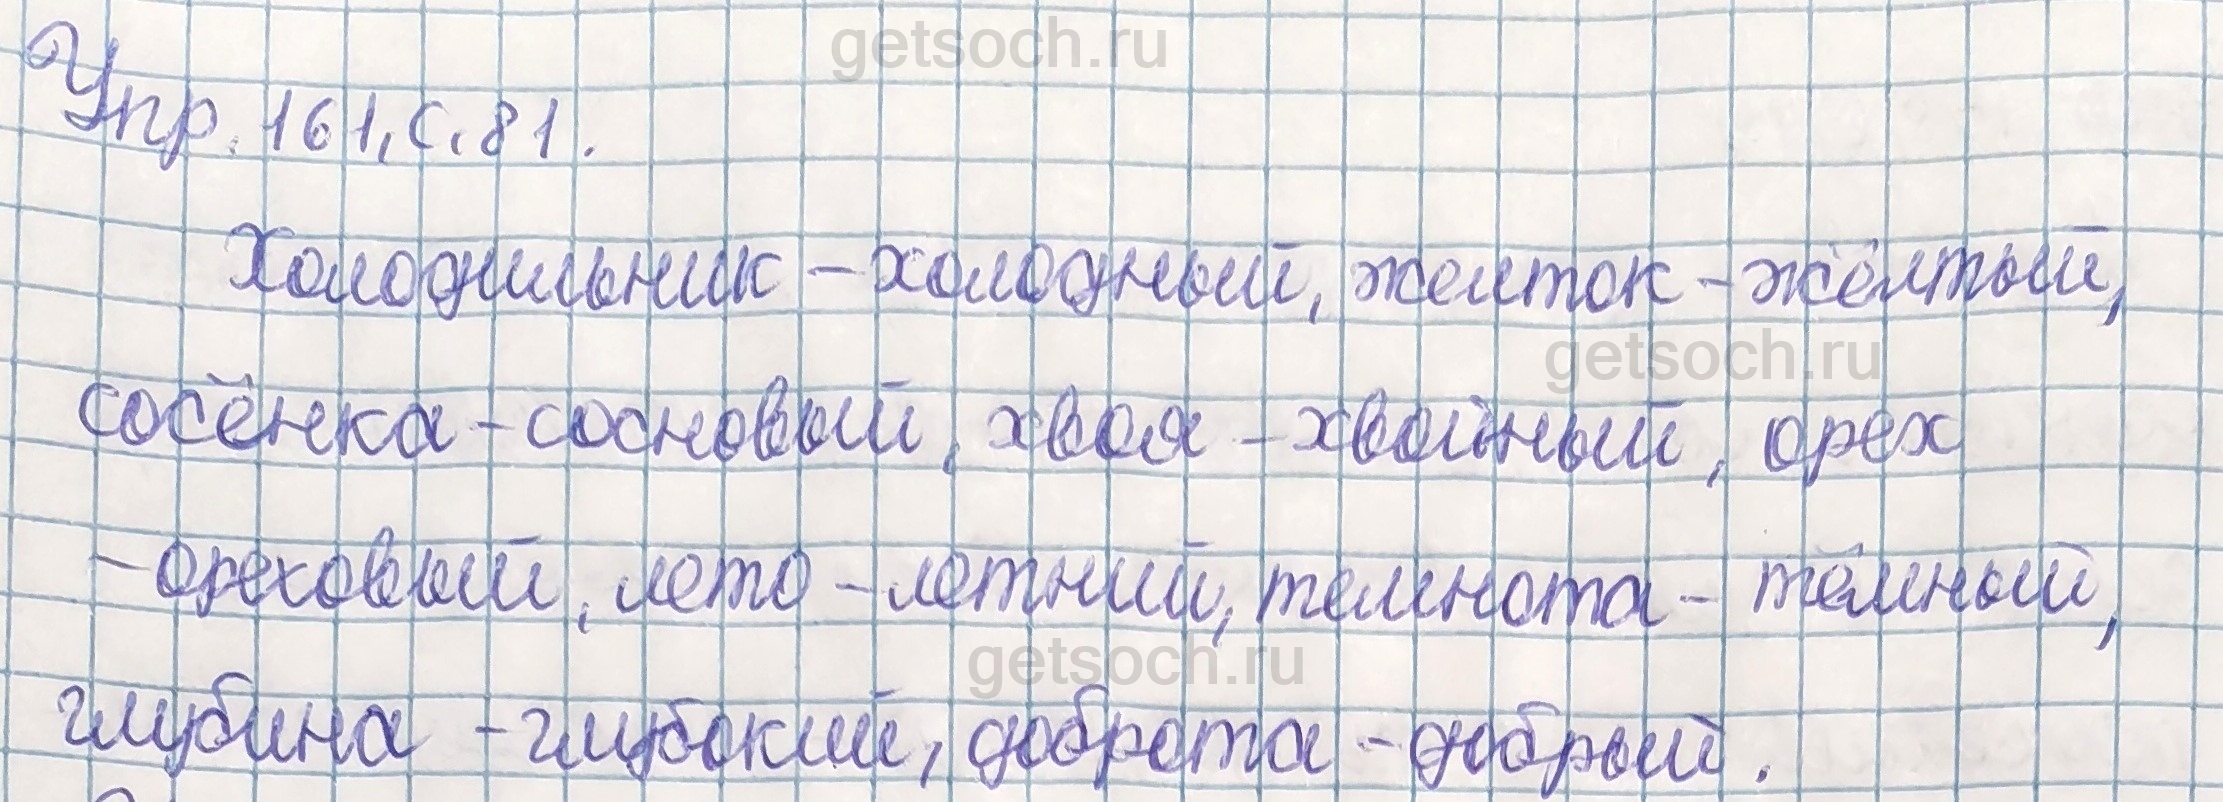 getsoch.ru
Упр. 161, с. 81.
Холодильник – холодный, желток – жёлтый,
getsoch.ru
сосёнка – сосновый, хвоя – хвойный, орех
– ореховый, лето – летний, темнота – тёмный,
getsoch.ru
глубина – глубокий, доброта – добрый.